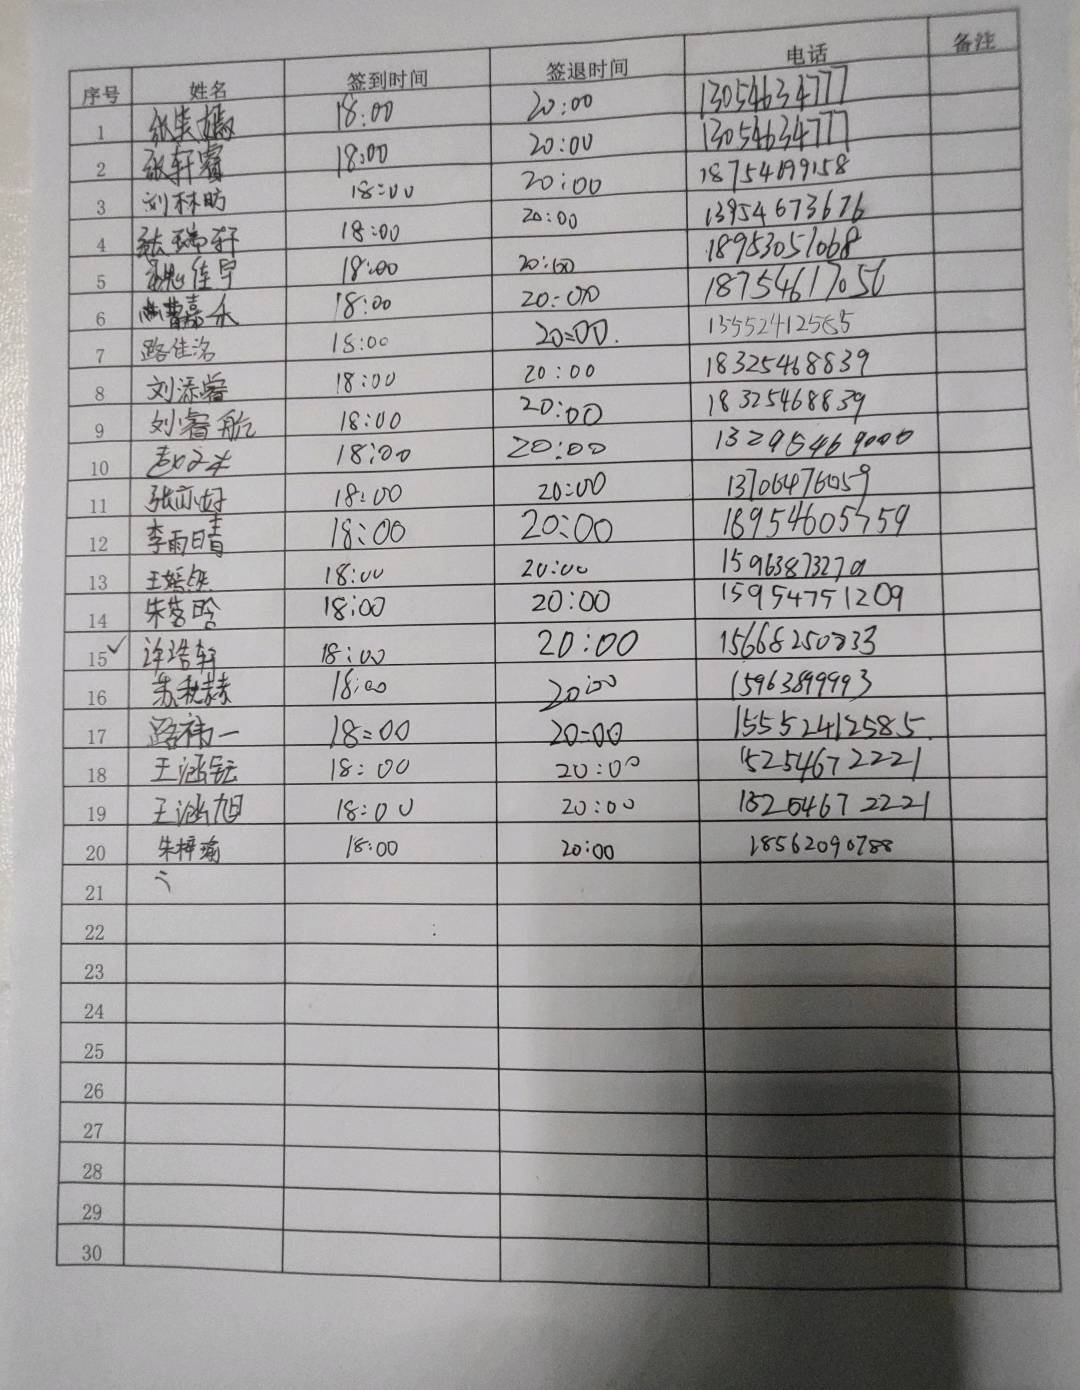 序号 姓名 签到时间 签退时间 电话 备注
1 18:00 20:00 13054634777
2 张轩睿 18:00 20:00 13054634777
3 刘林昀 18:00 20:00 18754699158
4 张瑞轩 18:00 20:00 13954673676
5 佳宇 18:00 20:00 18953051068
6 曹嘉 18:00 20:00 18754617056
7 路佳洺 18:00 20:00. 13552412585
8 刘添睿 18:00 20:00 18325468839
9 刘睿航 18:00 20:00 18325468839
10 18:00 20:00 13295469000
11 张亦好 18:00 20:00 13706476059
12 李雨晴 18:00 20:00 18954605759
13 18:00 20:00
14 18:00 20:00 15954751209
15 ✓ 许浩轩 18:00 20:00
16 18:00 20:00 15963899993
17 路祎一 18:00 20:00 15552412585.
18 王涵钰 18:00 20:00 15254672221
19 王涵旭 18:00 20:00 15254672221
20 朱梓瑜 18:00 20:00 18562090788
21
22
23
24
25
26
27
28
29
30